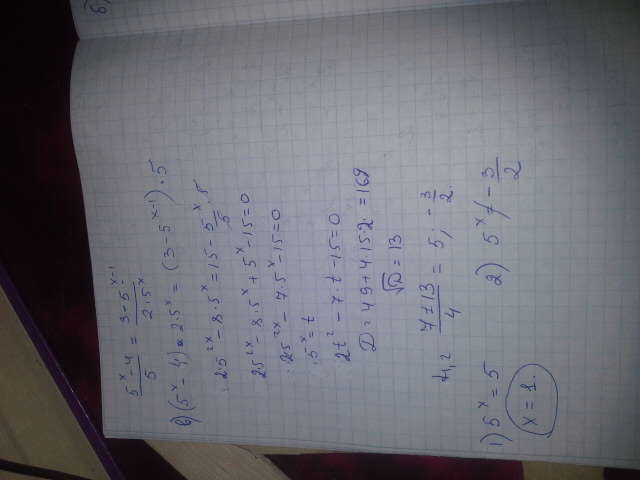 (5^x - 4)/5 = (3 - 5^(x-1))/(2·5^x)
б)
в) (5^x - 4) · 2·5^x = (3 - 5^(x-1)) · 5
2·5^(2x) - 8·5^x = 15 - 5^x/5 · 5
2·5^(2x) - 8·5^x + 5^x - 15 = 0
2·5^(2x) - 7·5^x - 15 = 0
5^x = t
2t² - 7·t - 15 = 0
D = 49 + 4·15·2 = 169
√D = 13
t₁,₂ (7 ± 13)/4 = 5; -3/2.
1) 5^x = 5 2) 5^x ≠ -3/2
x = 1.